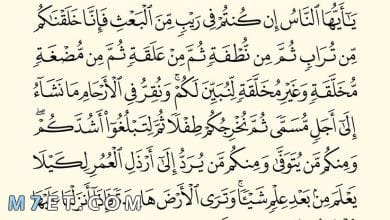 يَـٰٓأَيُّهَا ٱلنَّاسُ إِن كُنتُمْ فِى رَيْبٍ مِّنَ ٱلْبَعْثِ فَإِنَّا خَلَقْنَـٰكُم
مِّن تُرَابٍ ثُمَّ مِن نُّطْفَةٍ ثُمَّ مِنْ عَلَقَةٍ ثُمَّ مِن مُّضْغَةٍ
مُّخَلَّقَةٍ وَغَيْرِ مُخَلَّقَةٍ لِّنُبَيِّنَ لَكُمْ ۚ وَنُقِرُّ فِى ٱلْأَرْحَامِ مَا نَشَآءُ
إِلَىٰٓ أَجَلٍ مُّسَمًّى ثُمَّ نُخْرِجُكُمْ طِفْلًا ثُمَّ لِتَبْلُغُوٓا۟ أَشُدَّكُمْ ۖ
وَمِنكُم مَّن يُتَوَفَّىٰ وَمِنكُم مَّن يُرَدُّ إِلَىٰٓ أَرْذَلِ ٱلْعُمُرِ لِكَيْلَا
يَعْلَمَ مِنۢ بَعْدِ عِلْمٍ شَيْـًٔا ۚ وَتَرَى ٱلْأَرْضَ
M7ET.COM